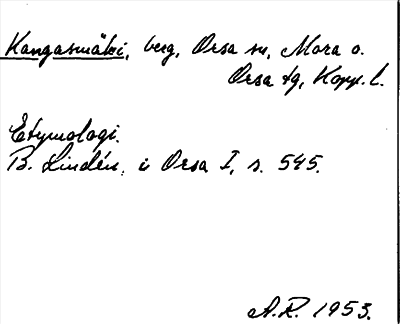 Kangasmäki, berg, Orsa sn, Mora o.
Orsa tg, Kopp. l.
Etymologi.
B. Lindén, i Orsa I, s. 545.
A.R. 1953.